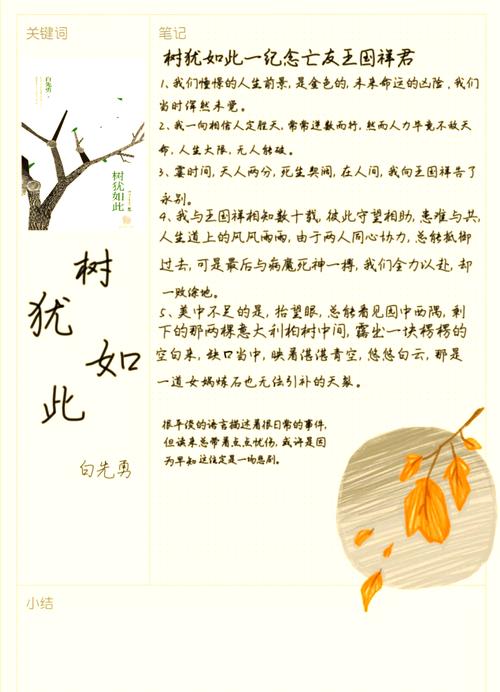 关键词
笔记
白先勇
树犹如此
树犹如此一纪念亡友王国祥君
1、我们憧憬的人生前景,是金色的,未来命运的凶险,我们
当时浑然未觉。
2、我一向相信人定胜天,常常逆数而行,然而人力毕竟不敌天
命,人生大限,无人能破。
3、霎时间,天人两分,死生契阔,在人间,我向王国祥告了
永别。
4、我与王国祥相知数十载,彼此守望相助,患难与共,
人生道上的风风雨雨,由于两人同心协力,总能抵御
过去,可是最后与病魔死神一搏,我们全力以赴,却
一败涂地。
5、美中不足的是,抬望眼,总能看见园中西隅,剩
下的那两棵意大利柏树中间,露出一块愕愕的
空白来,缺口当中,映着湛湛青空,悠悠白云,那是
一道女娲炼石也无法引补的天裂。
很平淡的语言描述着很日常的事件,
但读来总带着点点忧伤,或许是因
为早知这注定是一场悲剧。
树
犹
如
此
白先勇
小结